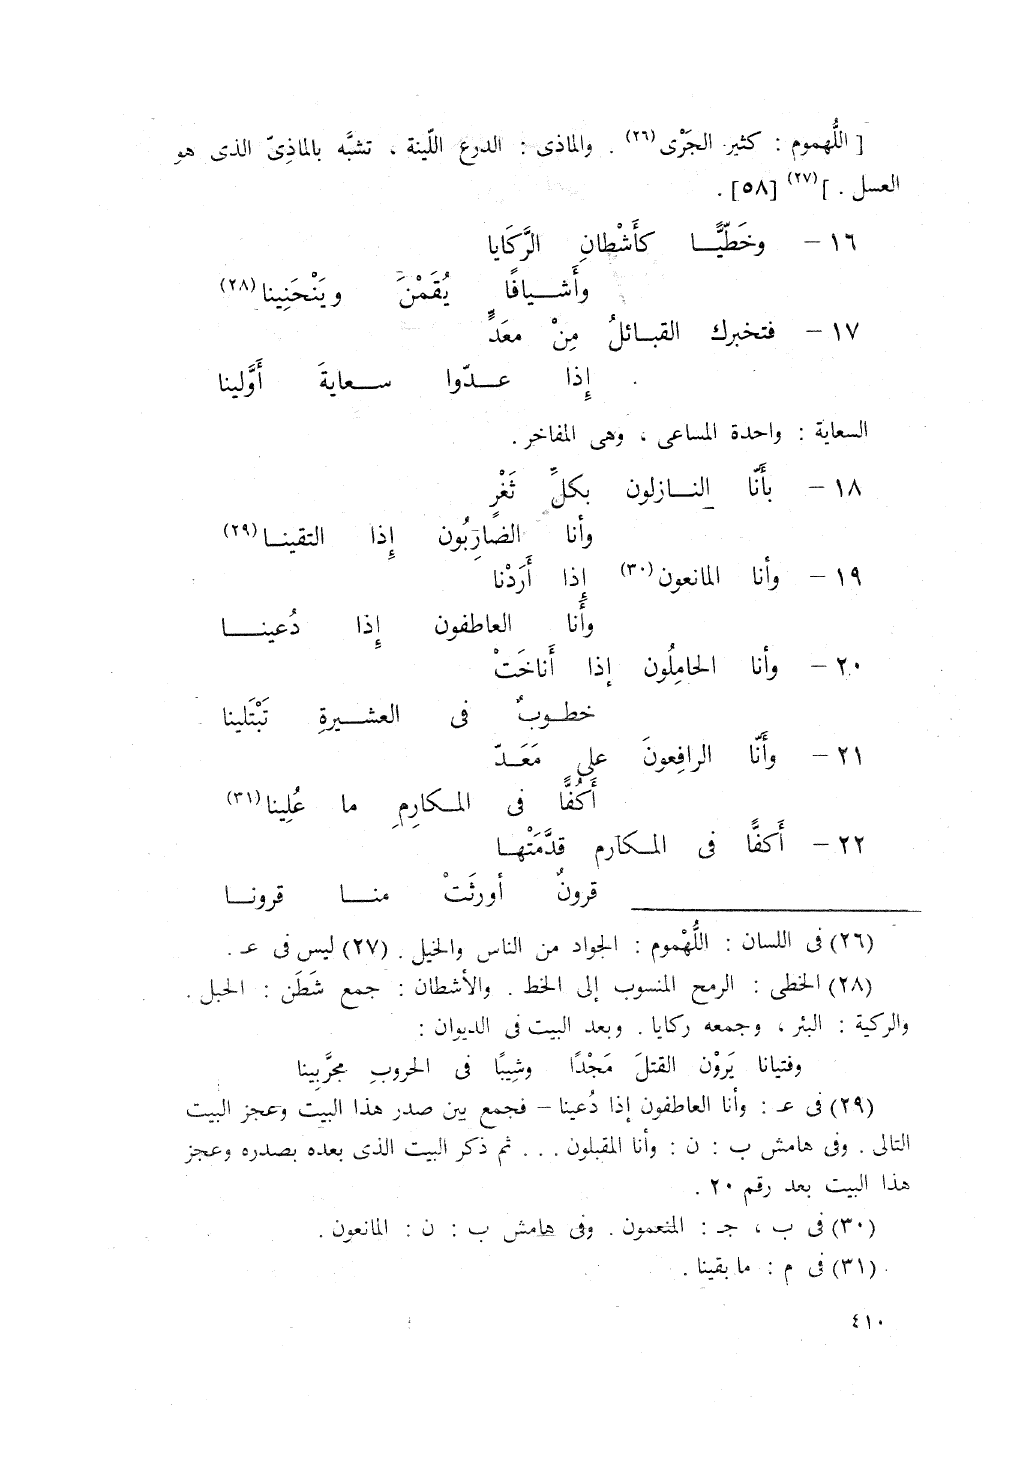 [ اللُّهموم : كثير الجَرْى (٢٦) . والماذى : الدرع اللّينة ، تشبَّه بالماذِىّ الذى هو
العسل . ] (٢٧) [٥٨] .
١٦ – وخَطِّيًّــا كأَشْطانِ الرَّكَايا
وأَشــيافًا يُقَمْنَ ويَنْحَنِينا (٢٨)
١٧ – فتخبرك القبـائلُ مِنْ معَدٍّ
إِذا عــدّوا ســعايةَ أَوَّلينا
السعاية : واحدة المساعى ، وهى المفاخر .
١٨ – بأَنَّا النــازلون بكلِّ ثَغْرٍ
وأنا الضارِبُون إِذا التقينـا (٢٩)
١٩ – وأنا المانعون (٣٠) إِذا أَرَدْنا
وأَنا العاطفون إِذا دُعينــــا
٢٠ – وأنا الحامِلُون إذا أَناخَتْ
خطـوبٌ فى العشـــيرةِ تَبْتَلينا
٢١ – وأَنَّا الرافِعونَ على مَعَـدّ
أَكُفًّا فى المـكارِمِ ما عُلِينا (٣١)
٢٢ – أَكفًّا فى المـكارم قدَّمَتْهـا
قرونٌ أورثَتْ منــا قرونـا
(٢٦) فى اللسان : اللُّهْموم : الجواد من الناس والخيل . (٢٧) ليس فى عـ .
(٢٨) الخطى : الرمح المنسوب إلى الخط . والأشطان : جمع شَطَن : الحبل .
والركية : البئر ، وجمعه ركايا . وبعد البيت فى الديوان :
وفتيانا يَرَوْن القتلَ مَجْدًا وشِيبًا فى الحروبِ مجرَّبِينا
(٢٩) فى عـ : وأنا العاطفون إذا دُعينا – فجمع بين صدر هذا البيت وعجز البيت
التالى . وفى هامش ب : ن : وأنا المقبلون . . . ثم ذكر البيت الذى بعده بصدره وعجز
هذا البيت بعد رقم ٢٠ .
(٣٠) فى ب ، جـ : المنعمون . وفى هامش ب : ن : المانعون .
(٣١) فى م : ما بقينا .
٤١٠